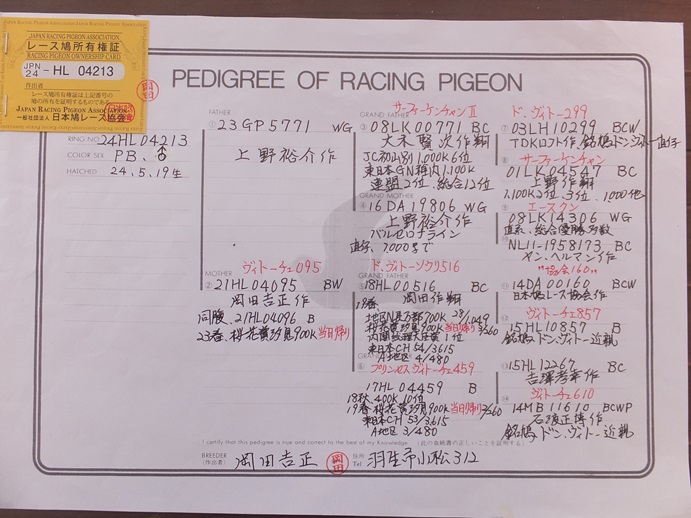 JAPAN RACING PIGEON ASSOCIATION
レース鳩所有権証
RACING PIGEON OWNERSHIP CARD
JPN 24 - HL 04213
作出者
レース鳩所有権証は上記番号の
鳩の所有を証明するものである
JAPAN RACING PIGEON ASSOCIATION
一般社団法人 日本鳩レース協会
岡田
PEDIGREE OF RACING PIGEON
RING NO. 24HL04213
COLOR SEX PB、♂
HATCHED 24.5.19生
FATHER
① 23GP5771 WG
上野裕介作
MOTHER
ヴィトーチェ095
② 21HL04095 BW
岡田吉正作
同腹、21HL04096 B
23春、桜花賞汐見900K当日帰り
GRAND FATHER
サーファーケンチャンⅡ
③ 08LK00771 BC
大木賢次作翔
JC初山別1,000K6位
東日本GN稚内1,100K
連盟2位、総合12位
GRAND MOTHER
④ 16DA19806 WG
上野裕介作
バルセロナライン
直仔、1000まで
ド・ヴィトーゾクリ516
18HL00516 BC
19春 岡田作翔
地区N長万部700K 28/1,049
桜花賞汐見900K当日帰り3/260
内閣総理大臣賞1位
東日本CH 54/3615
A地区 4/480
プリンセスヴィトーチェ459
17HL04459 B
18秋、400K10位
19春 桜花賞汐見900K当日帰り2/260
東日本CH 53/3615
A地区 3/480
ド・ヴィトー299
⑦ 03LH10299 BCW
TDKロフト作、銘鳩ドン・ヴィトー直仔
サーファーケンチャン
⑧ 01LK04547 BC
上野作翔
1,100K2位、3位、1000他
エースクン
⑨ 08LK14306 WG
直系、総合優勝多数
⑩ NL11-1958173 BC
ヤン・ヘルマン作
"協会160"
⑪ 14DA00160 BCW
日本鳩レース協会作
ヴィトーチェ857
15HL10857 B
銘鳩ドン・ヴィトー近親
⑬ 15HL12267 BC
吉澤孝幸作
ヴィトーチェ610
⑭ 14MB11610 BCWP
石渡正博作
銘鳩、ドン・ヴィトー近親
I certify that this pedigree is true and correct to the best of my Knowledge. (此の血統書の正しいことを証明する)
BREEDER (作出者) 岡田吉正 岡田 住所 Tel 羽生市小松312